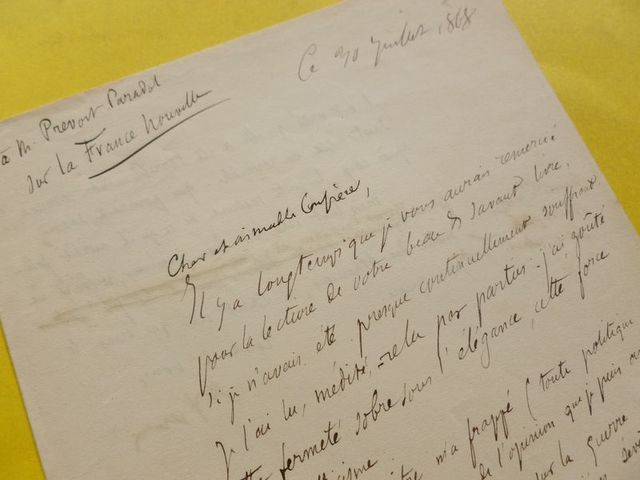 Ce 30 juillet 1868
à M. Prevost Paradol
sur la France Nouvelle
Cher et aimable Confrère,
Il y a longtemps que je vous aurais remercié
pour la lecture de votre beau & savant livre,
si je n'avais été presque continuellement souffrant
Je l'ai lu, médité, relu par parties. j'ai goûté
fermeté sobre sous l'élégance, cette force
m'a frappé (toute politique
de l'opinion que je puis
sur la guerre